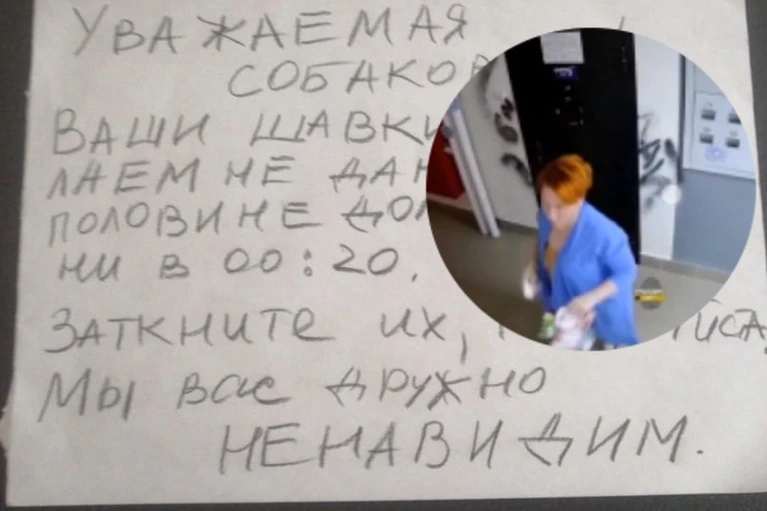 УВАЖАЕМАЯ
ВАШИ ШАВКИ
ЛАЕМ НЕ
ПОЛОВИНЕ
НИ В 00:20.
ЗАТКНИТЕ ИХ,
МЫ ВАС ДРУЖНО
НЕНАВИДИМ.